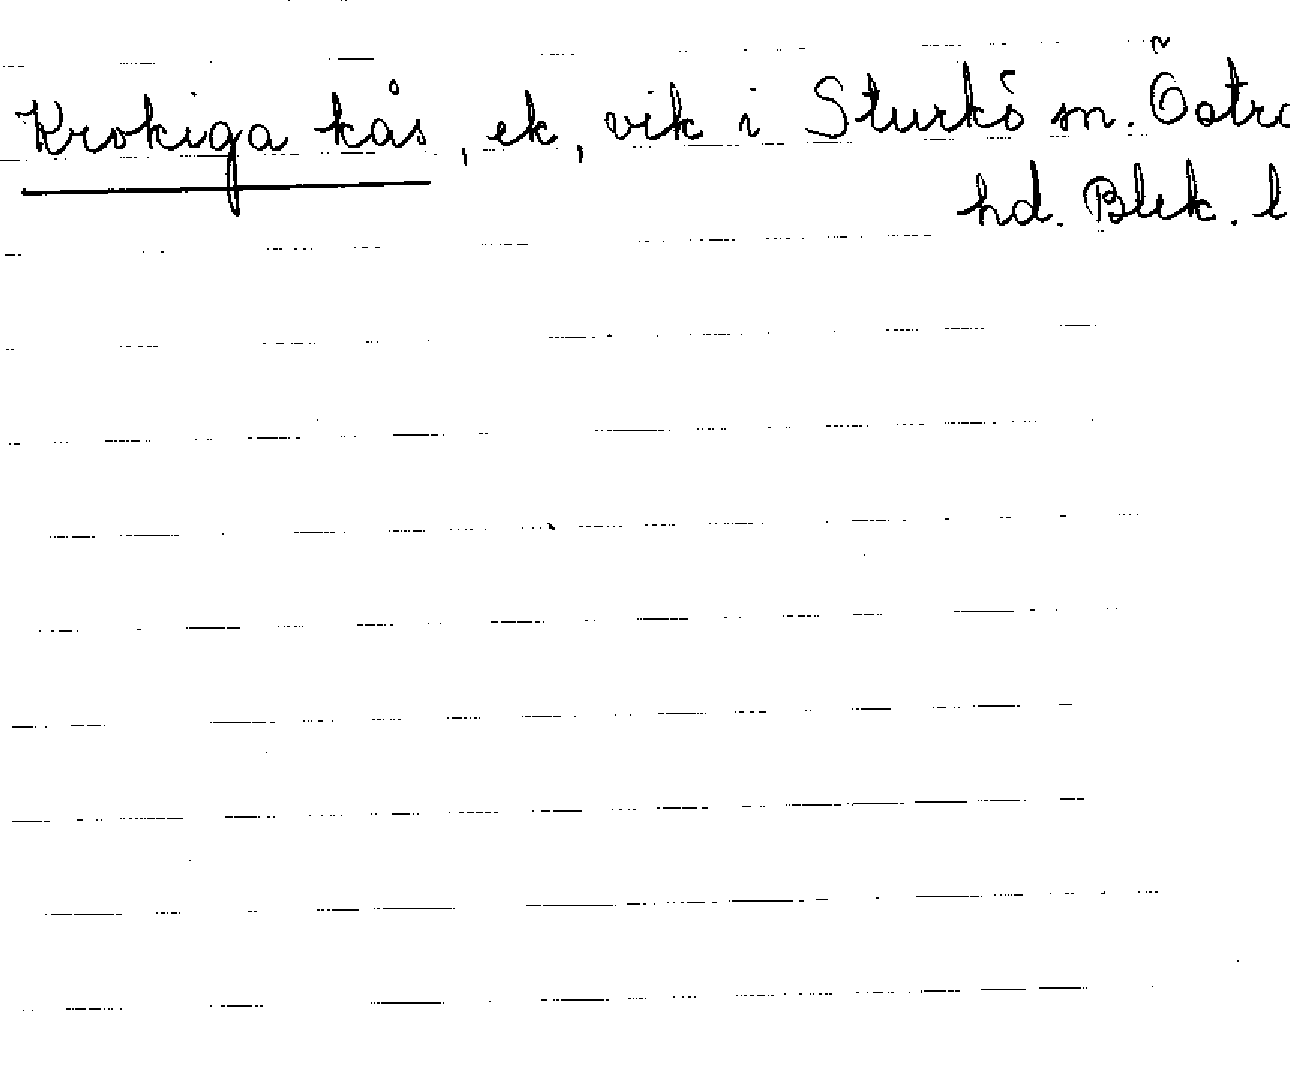 Krokiga kås, ek, vik i Sturkö sn. Östra
hd. Blek. l